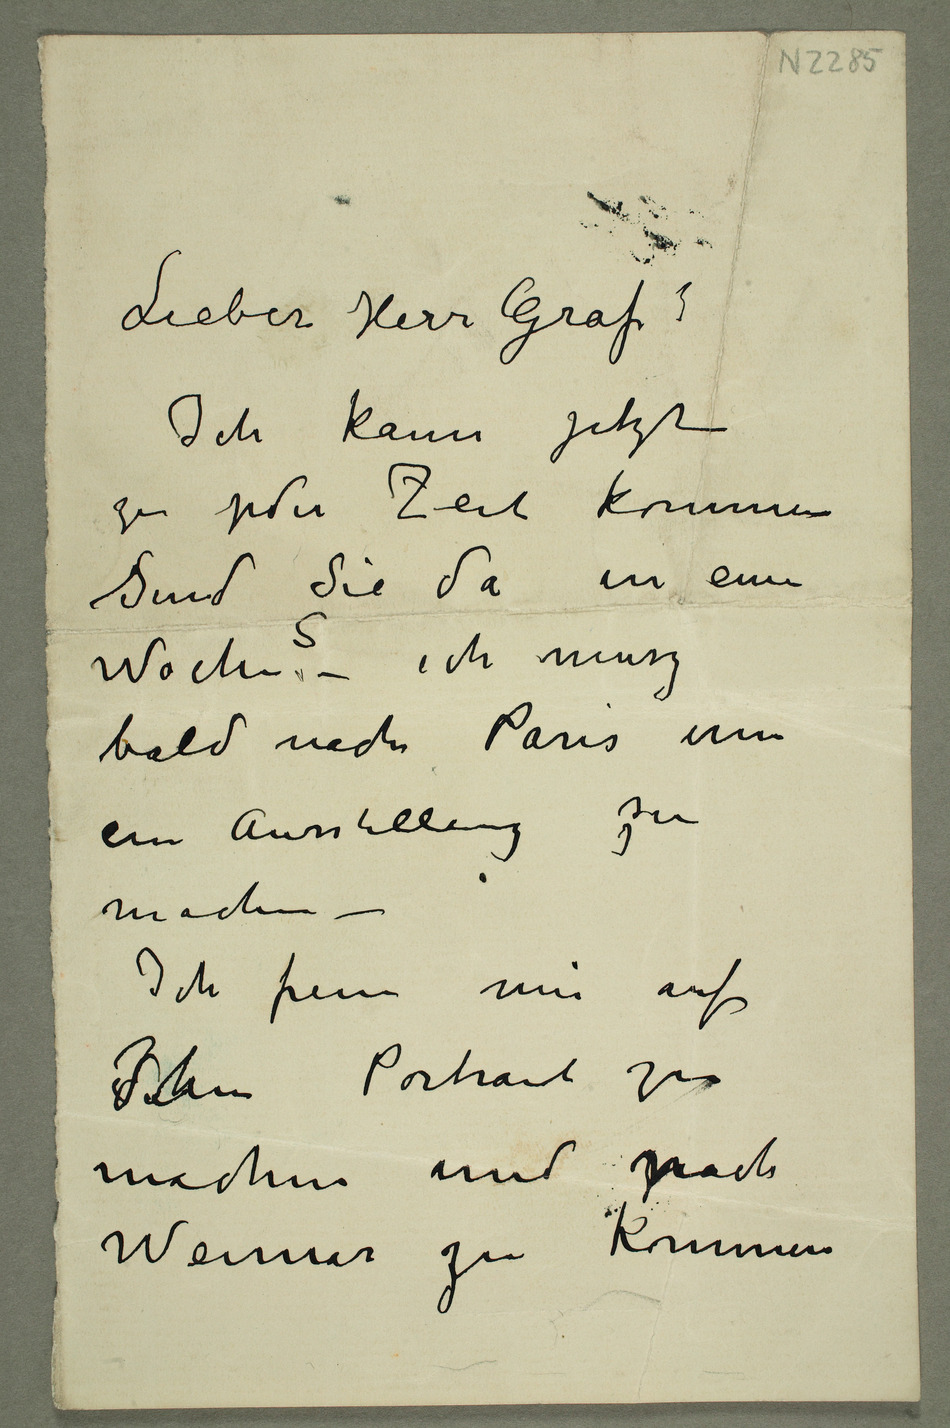 N2285
Lieber Herr Graf!
Ich kann jetzt
zu jeder Zeit kommen
Sind Sie da in eine
Woche? – ich musz
bald nach Paris um
ein Ausstellung zu
machen –
Ich freue mir auf
Ihre Portrait zu
machen und nach
Weimar zu kommen